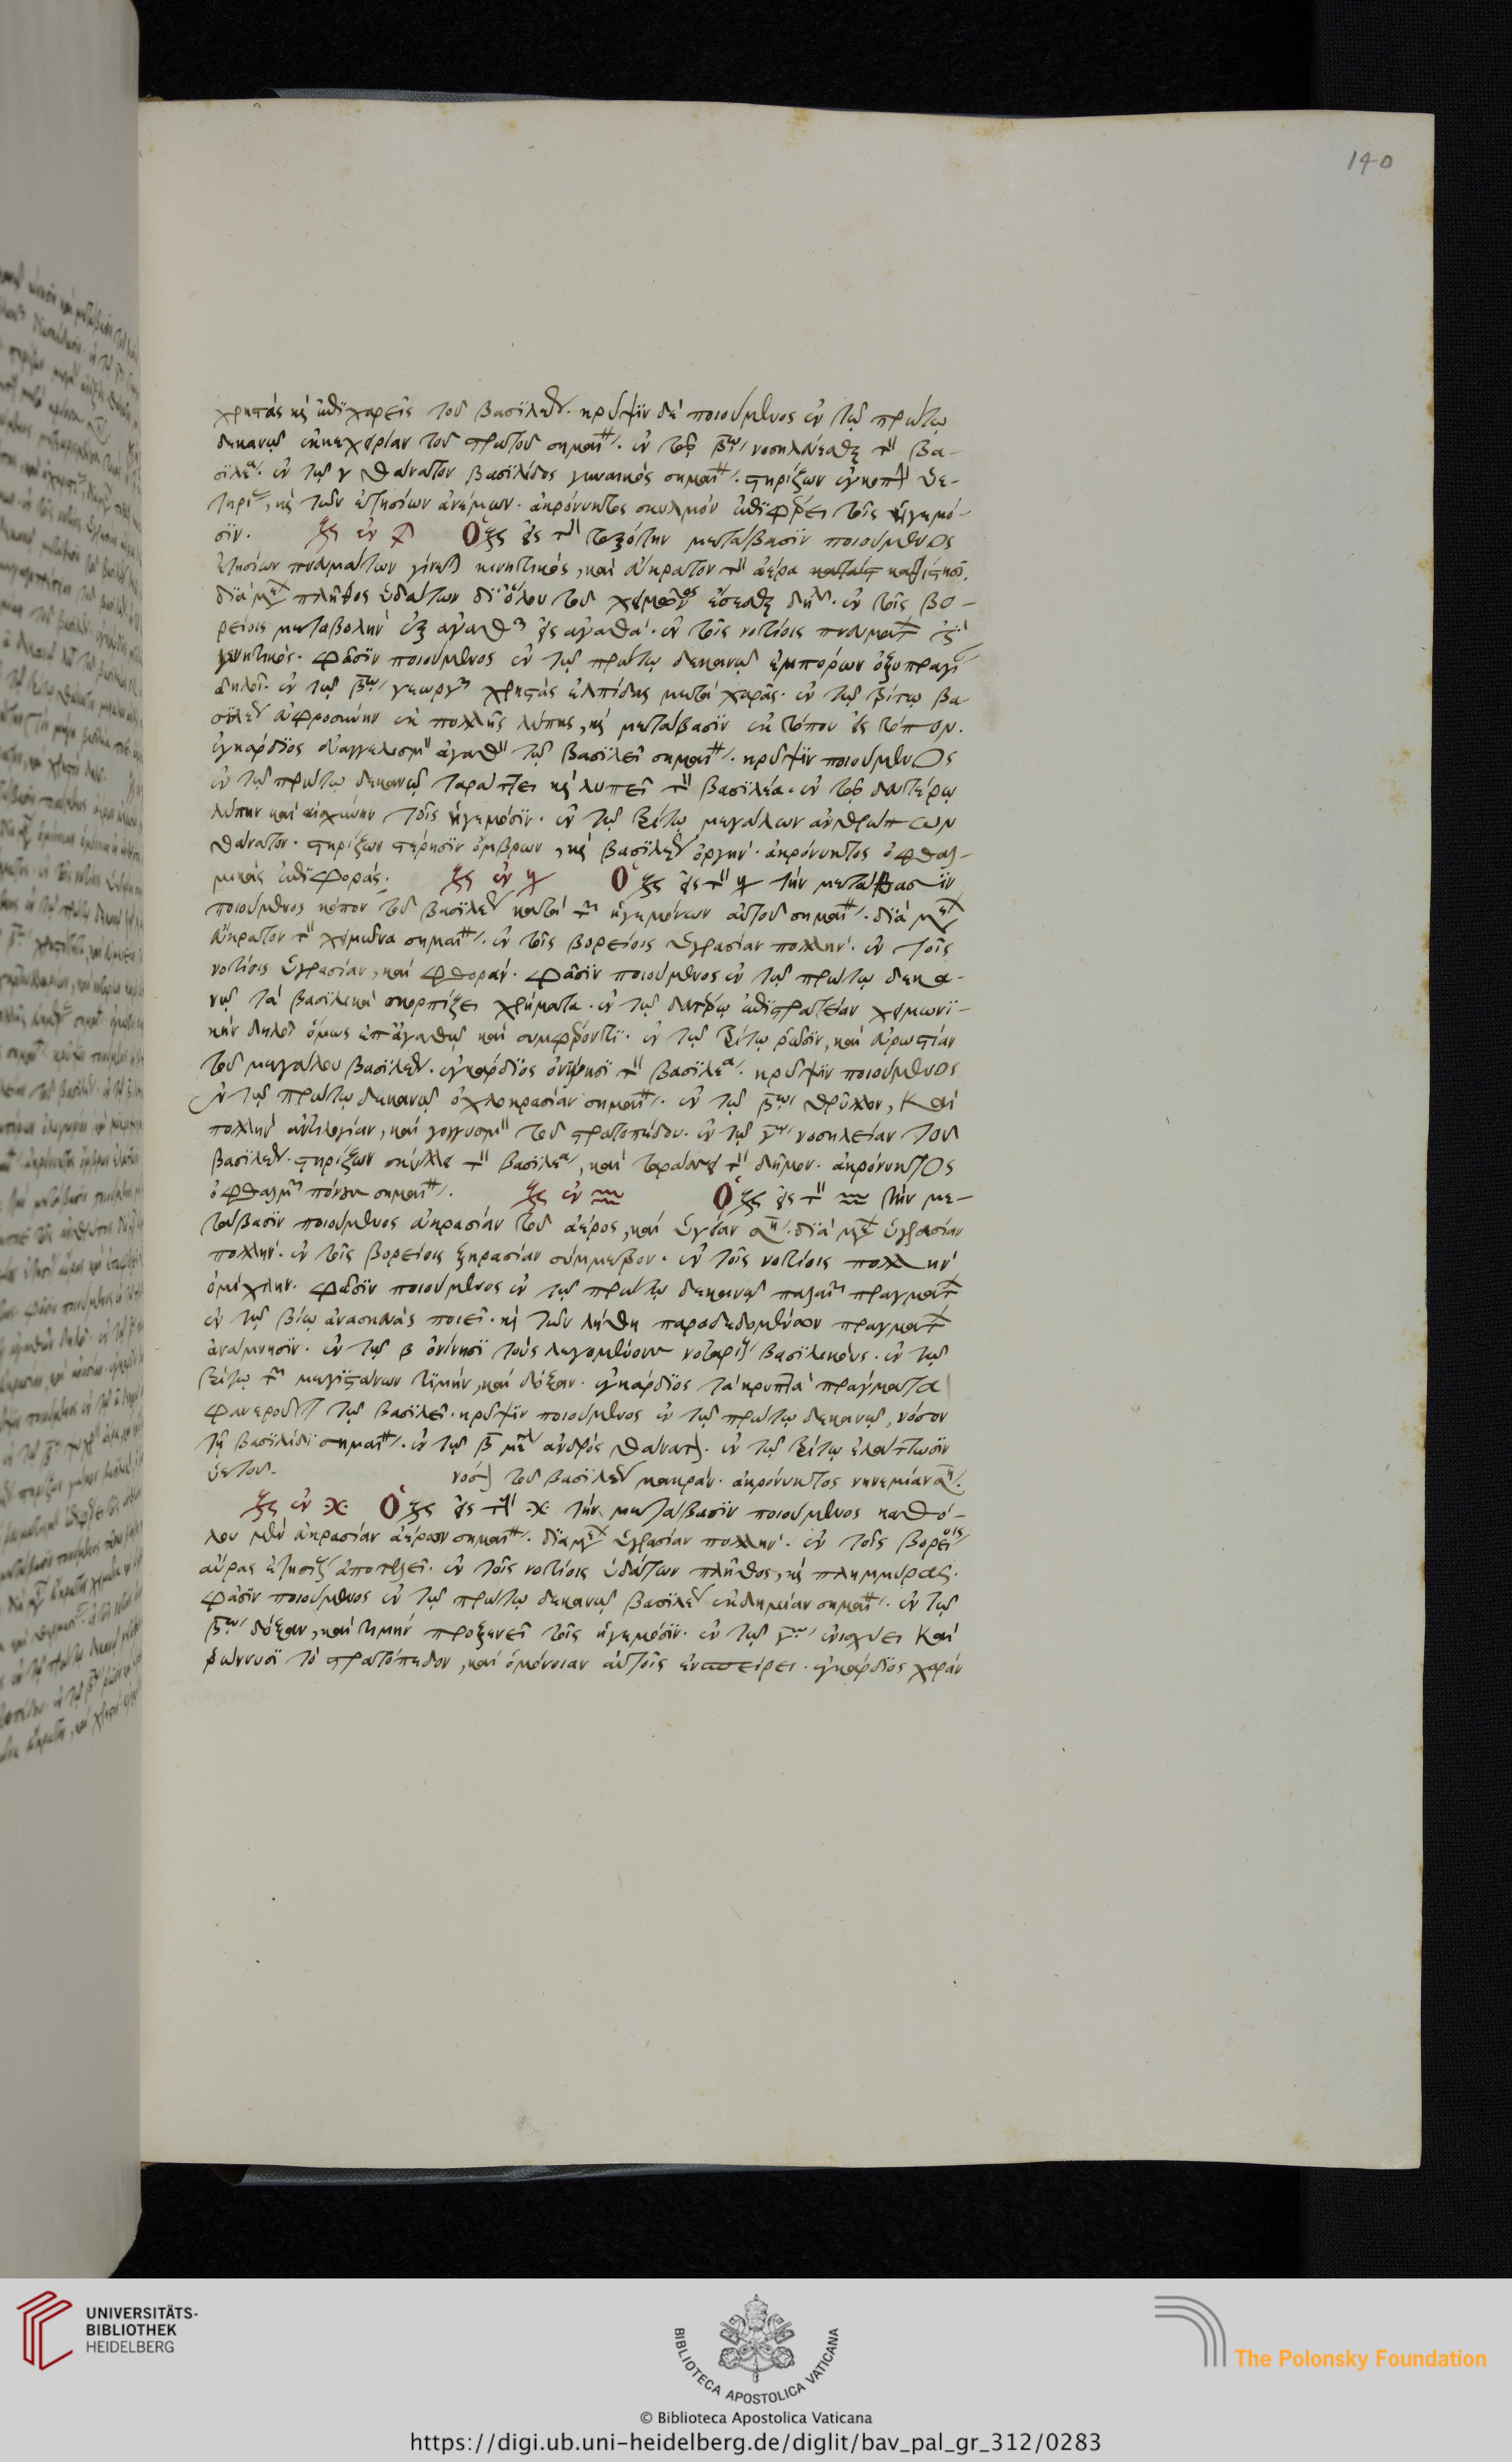 140
χρηστὰς καὶ ἐπιχαρεῖς τοῦ βασιλέως. κρύψιν δὲ ποιούμενος ἐν τῷ πρώτῳ
δεκανῷ τοῦ στρατοῦ σημαί. ἐν τῷ βω νοσηλεύεσθαι τὸν βα-
σιλέα. ἐν τῷ γ θάνατον βασιλίδος γυναικὸς σημαί. στηρίζων
καὶ τῶν ἐτησίων ἀνέμων. ἀκρόνυκτος σκυλμὸν ἐπιφέρει τοῖς ἡγεμό-
σιν. ἐν ♐ Ὁ εἰς τὸν τοξότην μετάβασιν ποιούμενος
ἐτησίων πνευμάτων γίνεται κινητικός, καὶ ἄκρατον τὸν ἀέρα
διὰ πλῆθος ὑδάτων δι' ὅλου τοῦ χειμῶνος ἔσεσθαι δηλ. ἐν τοῖς βο-
ρείοις μεταβολὴν ἐξ ἀγαθῶν εἰς ἀγαθά. ἐν τοῖς νοτίοις πνευμάτ ἐς
κινητικός. φάσιν ποιούμενος ἐν τῷ πρώτῳ δεκανῷ ἐμπόρων ὀξυπραγί
δηλοῖ. ἐν τῷ βω γεωργῶν χρηστὰς ἐλπίδας μετὰ χαρᾶς. ἐν τῷ τρίτῳ βα
σιλέως εὐφροσύνην ἐκ πολλῆς λύπης, καὶ μετάβασιν ἐκ τόπου εἰς τόπον.
ἐγκάρδιος εὐαγγελισμὸν ἀγαθὸν τῷ βασιλεῖ σημαί. κρύψιν ποιούμενος
ἐν τῷ πρώτῳ δεκανῷ ταράττει καὶ λυπεῖ τὸν βασιλέα. ἐν τῷ δευτέρῳ
λύπην καὶ αἰσχύνην τοῖς ἡγεμόσιν. ἐν τῷ τρίτῳ μεγάλων ἀνθρώπων
θάνατον. στηρίζων στέρησιν ὄμβρων, καὶ βασιλέως ὀργήν. ἀκρόνυκτος ὀφθαλ-
μικὰς ἐπιφοράς. ἐν ♑ Ὁ εἰς τὸν ♑ τὴν μετάβασιν
ποιούμενος κόπον τοῦ βασιλέως κατὰ τῶν ἡγεμόνων αὐτοῦ σημαί. διὰ
ἄκρατον τὸν χειμῶνα σημαί. ἐν τοῖς βορείοις ὑγρασίαν πολλήν. ἐν τοῖς
νοτίοις ὑγρασίαν, καὶ φθοράν. φάσιν ποιούμενος ἐν τῷ πρώτῳ δεκα-
νῷ τὰ βασιλικὰ σκορπίζει χρήματα. ἐν τῷ δευτέρῳ ἐπιστρατείαν χειμωνι-
κὴν δηλοῖ ὅμως ἐπ' ἀγαθῷ καὶ συμφέροντι. ἐν τῷ τρίτῳ ῥῶσιν, καὶ εὐρωστίαν
τοῦ μεγάλου βασιλέως. ἐγκάρδιος ὀνήσει τὸν βασιλέα. κρύψιν ποιούμενος
ἐν τῷ πρώτῳ δεκανῷ ὀχλοκρασίαν σημαί. ἐν τῷ βω θρῦλον, καὶ
πολλὴν ἀντιλογίαν, καὶ γογγυσμὸν τοῦ στρατοπέδου. ἐν τῷ γω νοσηλείαν τοῦ
βασιλέως. στηρίζων σκύλλει τὸν βασιλέα, καὶ ταράσσει τὸν δῆμον. ἀκρόνυκτος
ὀφθαλμῶν πόνον σημαί. ἐν ♒ Ὁ εἰς τὸν ♒ τὴν με-
τάβασιν ποιούμενος εὐκρασίαν τοῦ ἀέρος, καὶ ὑγείαν. διὰ ὑγρασίαν
πολλήν. ἐν τοῖς βορείοις ξηρασίαν σύμμετρον. ἐν τοῖς νοτίοις πολλὴν
ὁμίχλην. φάσιν ποιούμενος ἐν τῷ πρώτῳ δεκανῷ παλαιῶν πραγμάτ
ἐν τῷ βίῳ ἀνασκευὰς ποιεῖ. καὶ τῶν λήθῃ παραδεδομένων πραγμάτ
ἀνάμνησιν. ἐν τῷ β ὀνίνησι τοὺς λεγομένους νοταρί βασιλικούς. ἐν τῷ
τρίτῳ τῶν μεγιστάνων τιμήν, καὶ δόξαν. ἐγκάρδιος τὰ κρυπτὰ πράγματα
φανεροῦται τῷ βασιλεῖ. κρύψιν ποιούμενος ἐν τῷ πρώτῳ δεκανῷ, νόσον
τῇ βασιλίδι σημαί. ἐν τῷ β ἀνδρὸς θάνατ. ἐν τῷ τρίτῳ ἐλάττωσιν
ὑετοῦ. νόσ τοῦ βασιλέως μακράν. ἀκρόνυκτος νηνεμίαν.
ἐν ♓ Ὁ εἰς τὴν ♓ τὴν μετάβασιν ποιούμενος καθό-
λου μὲν εὐκρασίαν ἀέρων σημαί. διὰ ὑγρασίαν πολλήν. ἐν τοῖς βορείοις
αὔρας ἐτησί ἀποτελεῖ. ἐν τοῖς νοτίοις ὑδάτων πλῆθος, καὶ πλημμύρας.
φάσιν ποιούμενος ἐν τῷ πρώτῳ δεκανῷ βασιλέως ἐκδημίαν σημαί. ἐν τῷ
βω δόξαν, καὶ τιμὴν προξενεῖ τοῖς ἡγεμόσιν. ἐν τῷ γω ἐνισχύει καὶ
ῥώννυσι τὸ στρατόπεδον, καὶ ὁμόνοιαν αὐτοῖς ἐνσπείρει. ἐγκάρδιος χαρὰν
UNIVERSITÄTS-
BIBLIOTHEK
HEIDELBERG
BIBLIOTECA APOSTOLICA VATICANA
The Polonsky Foundation
© Biblioteca Apostolica Vaticana
https://digi.ub.uni-heidelberg.de/diglit/bav_pal_gr_312/0283